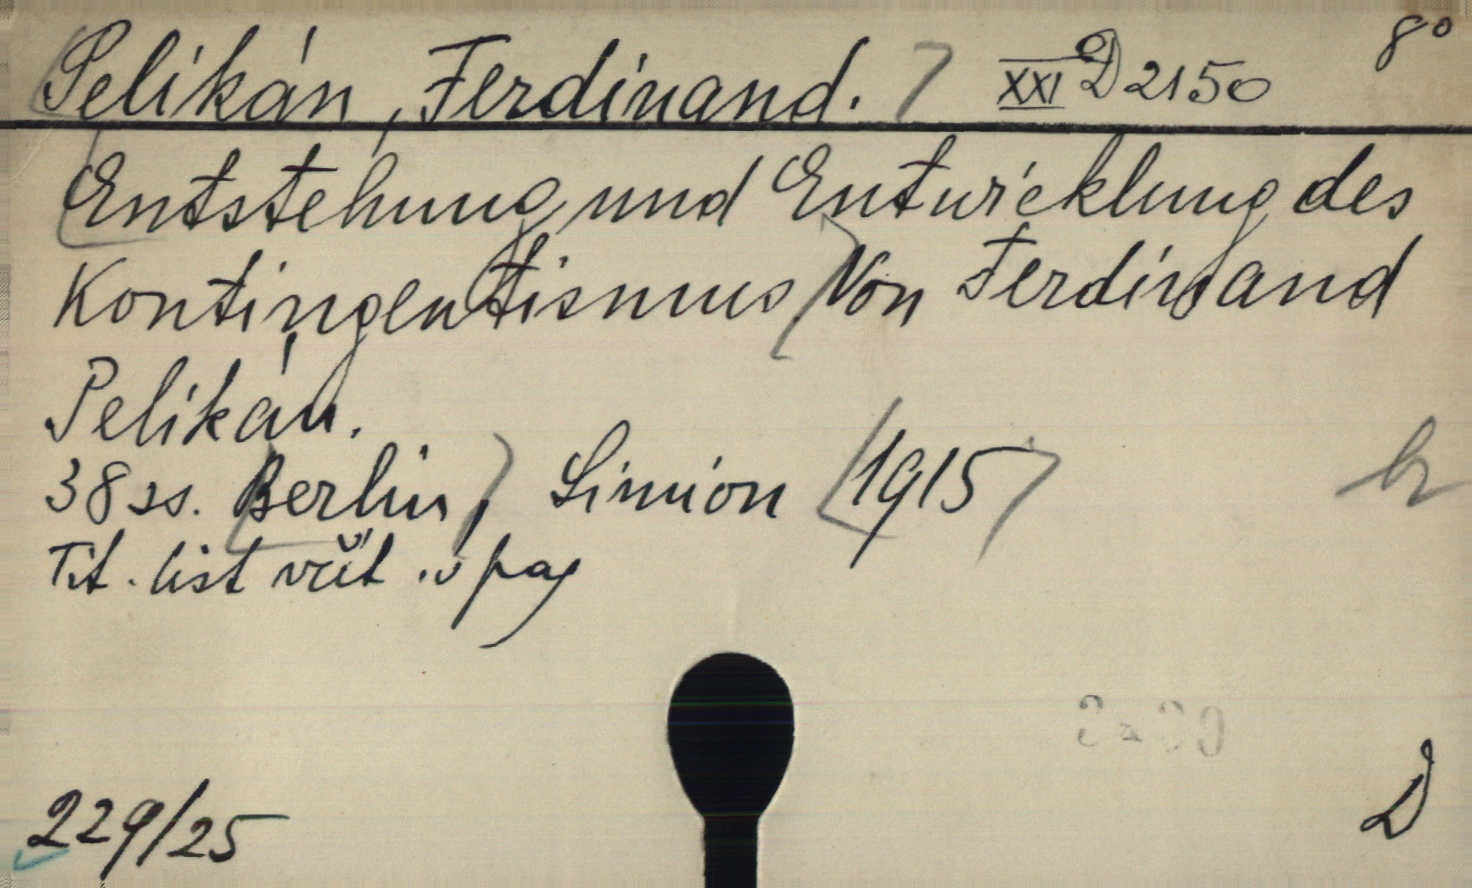 Pelikán, Ferdinand. XXI D 2150 8°
Entstehung und Entwicklung des
Kontingentismus Von Ferdinand
Pelikán.
38 ss. Berlin, Simion 1915 br
Tit. list včít. v pag
229/25 D